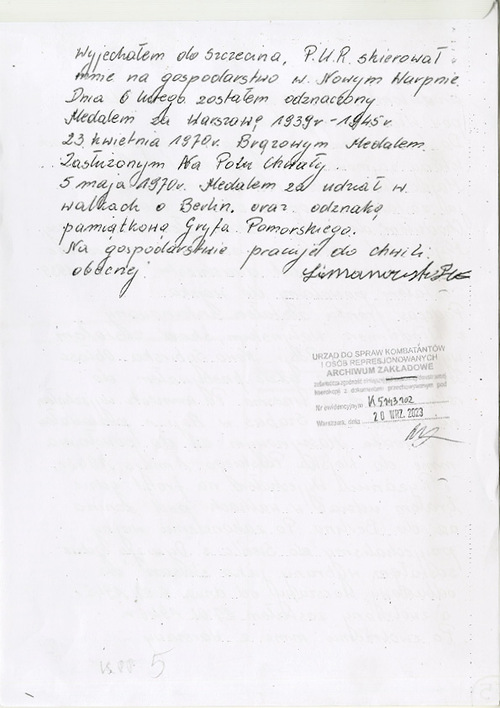 Wyjechałem do Szczecina, P.U.R. skierował
mnie na gospodarstwo w. Nowym Warpnie.
Dnia 6 lutego zostałem odznaczony
Medalem za Warszawę 1939r-1945r.
23 kwietnia 1970r. Brązowym Medalem
Zasłużonym Na Polu Chwały
5 maja 1970r. Medalem za udział w
walkach o Berlin. oraz odznaką
pamiątkową Gryfa Pomorskiego.
Na gospodarstwie pracuję do chwili
obecnej
URZĄD DO SPRAW KOMBATANTÓW
I OSÓB REPRESJONOWANYCH
ARCHIWUM ZAKŁADOWE
kserokopii z dokumentem przechowywanym pod
Nr ewidencyjnym K5143702
Warszawa, dnia 20 WRZ. 2023
5